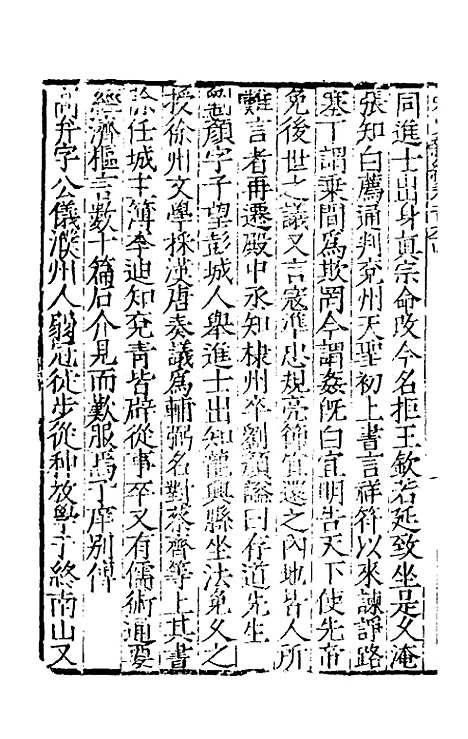 同進士出身真宗命改今名拒王欽若延致坐是久淹
張知白薦通判兖州天聖初上書言祥符以來諫諍路
塞丁謂乗間爲欺罔今謂姦既白宜明告天下使先帝
免後世之議又言寇準忠規亮節宜還之內地皆人所
難言者再遷殿中丞知棣州卒劉顔謚曰存道先生
顔字子望彭城人舉進士出知龍興縣坐法免久之
授徐州文學採漢唐奏議爲輔弼名對蔡齊等上其書
任城主簿李迪知兖青皆辟從事卒又有儒術通要
經濟樞言數十篇石介見而歎服焉丁庠別傳
高弁字公儀濮州人弱冠徒步從种放學于終南山又